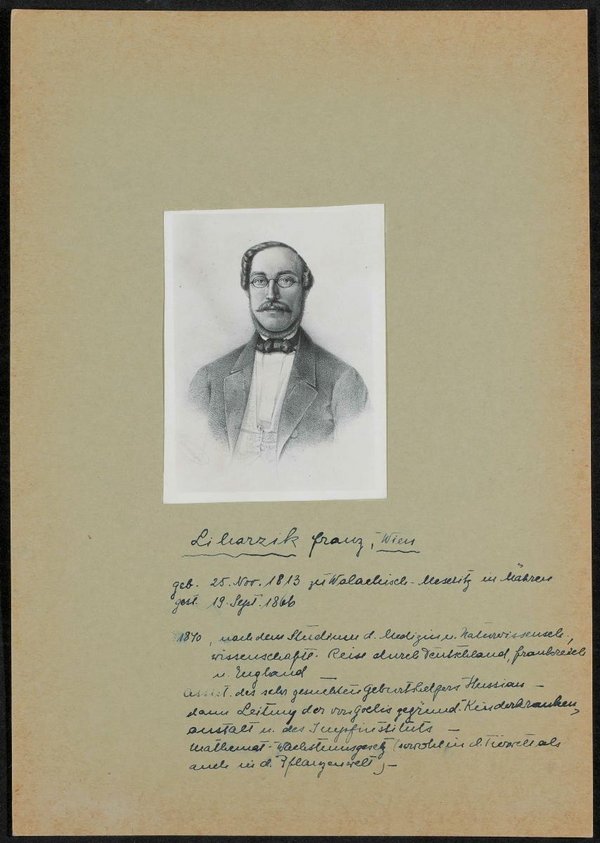 Liharzik Franz, Wien
geb. 25. Nov. 1813 zu Walachisch-Meseritz in Mähren
gest. 19. Sept. 1866
1840, nach dem Studium d. Medizin u. Naturwissensch,
wissenschaftl. Reise durch Deutschland, Frankreich
u. England —
Assist. des sehr gesuchten Geburtshelfers Hussian —
dann Leitung der von Goelis gegründ. Kinderkranken,
anstalt u. des Impfinstituts —
Mathemat. Wachstumsgesetz (sowohl in d. Tierwelt als
auch in d. Pflanzenwelt) —